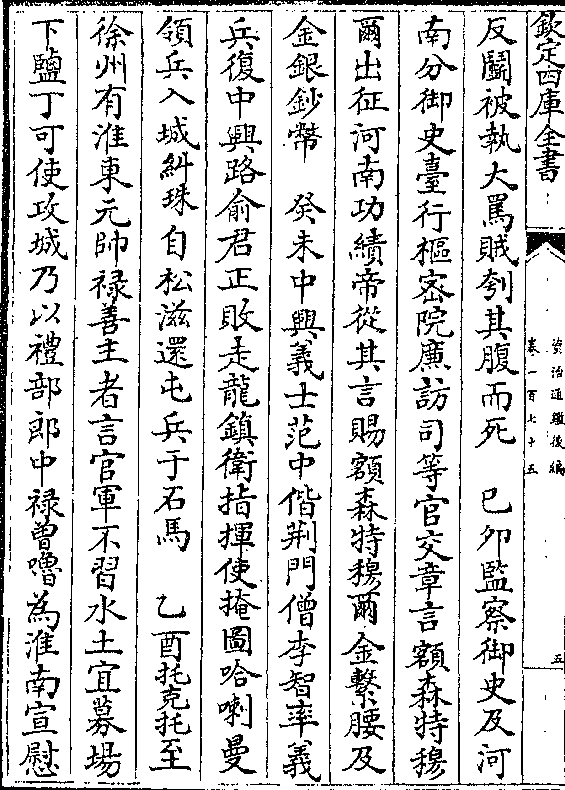 欽定四庫全書
資治通鑑後編
卷一百七十五
五
反鬭被執大罵賊刳其腹而死　己卯監察御史及河
南分御史臺行樞密院廉訪司等官交章言額森特穆
爾出征河南功績帝從其言賜額森特穆爾金繫腰及
金銀鈔幣　癸未中興義士范中偕荆門僧李智率義
兵復中興路俞君正敗走龍鎮衛指揮使掩圖哈喇曼
領兵入城糾珠自松滋還屯兵于石馬　乙酉托克托至
徐州有淮東元帥禄善主者言官軍不習水土宜募場
下鹽丁可使攻城乃以禮部郎中禄曽嚕為淮南宣慰